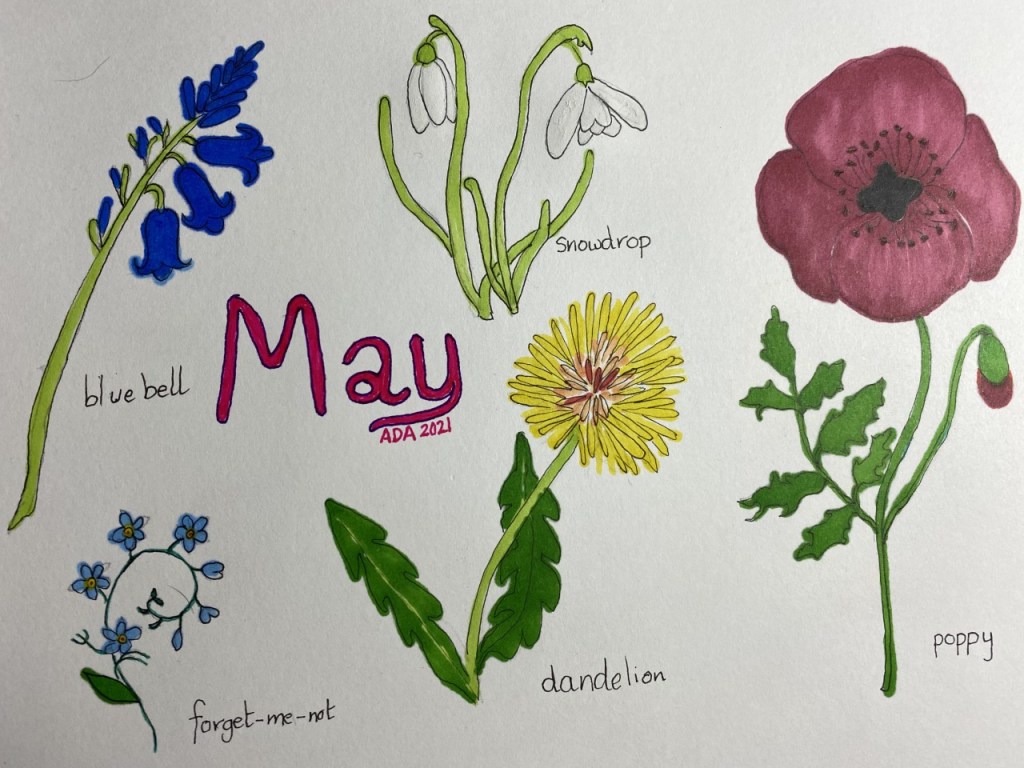 snowdrop
blue bell
May
ADA 2021
forget-me-not
dandelion
poppy